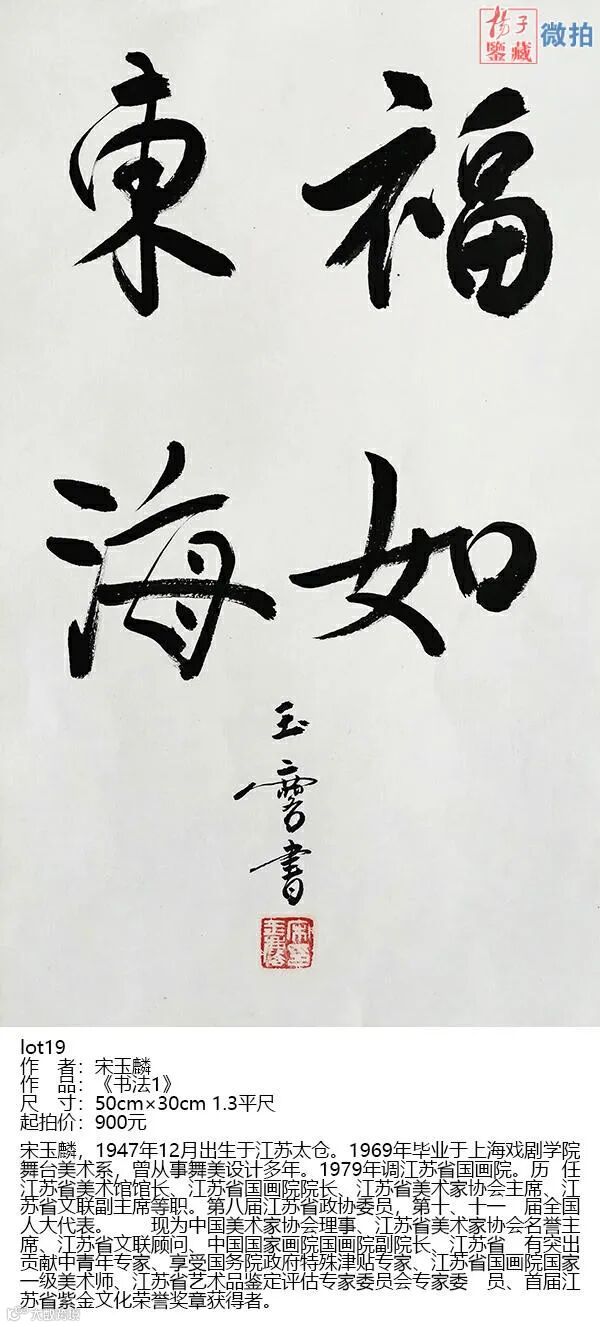 子楊
藏鑒
微拍
福如
東海
玉麐書
lot19
作 者：宋玉麟
作 品：《书法1》
尺 寸：50cm×30cm 1.3平尺
起拍价：900元
宋玉麟，1947年12月出生于江苏太仓。1969年毕业于上海戏剧学院
舞台美术系，曾从事舞美设计多年。1979年调江苏省国画院。历 任
江苏省美术馆馆长、江苏省国画院院长、江苏省美术家协会主席、江
苏省文联副主席等职。第八届江苏省政协委员，第十、十一 届全国
人大代表。 现为中国美术家协会理事、江苏省美术家协会名誉主
席、江苏省文联顾问、中国国家画院国画院副院长、江苏省 有突出
贡献中青年专家、享受国务院政府特殊津贴专家、江苏省国画院国家
一级美术师、江苏省艺术品鉴定评估专家委员会专家委 员、首届江
苏省紫金文化荣誉奖章获得者。